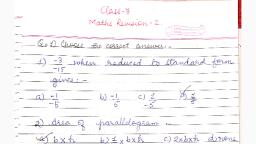 Class-7
Maths Revision - 2
Q.1) Choose the correct answer:-
1) -3/-15 when reduced to standard form
gives:-
a) -1/-5 b) -1/5 c) 1/-5 d)
2) Area of parallelogram
a) b×h b) 1/2×b×h c) 2×b×h d) none